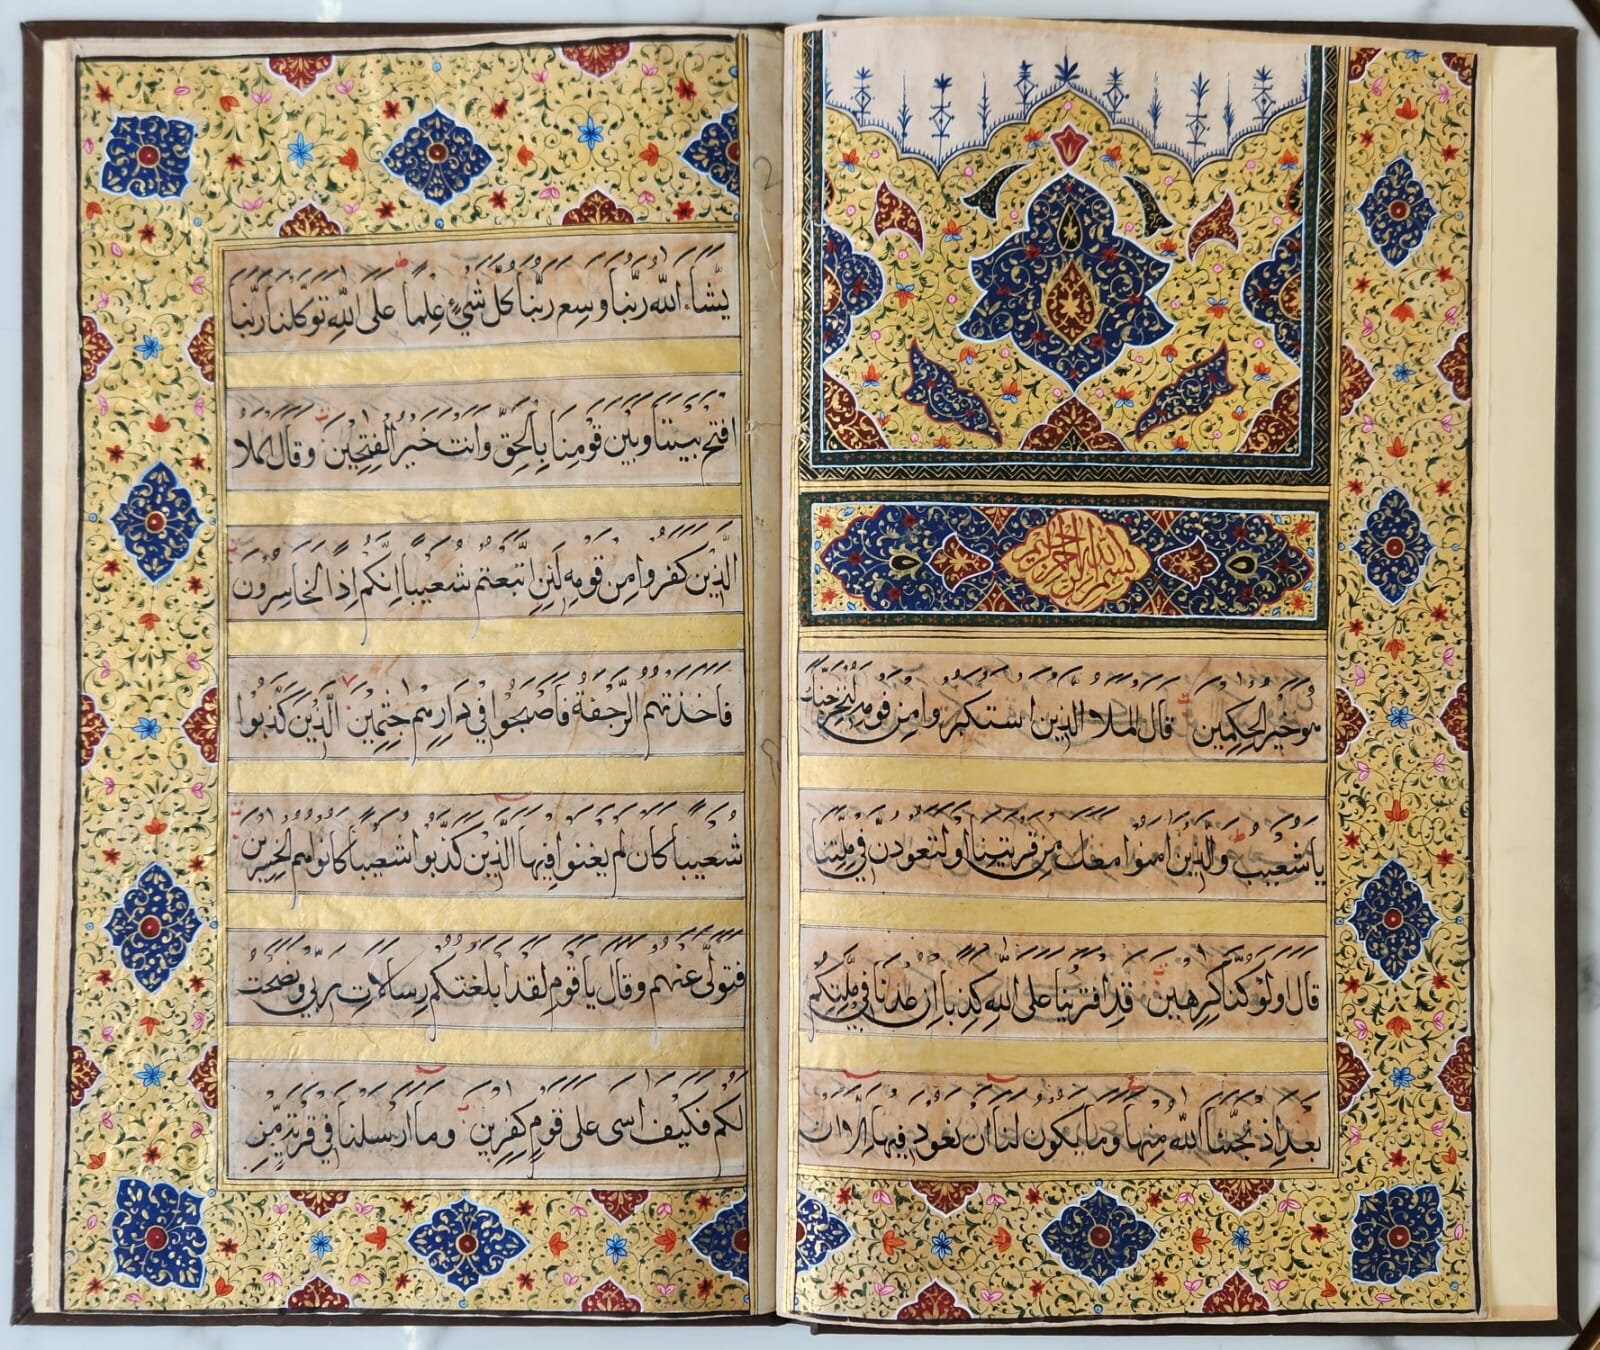 بسم الله الرحمن الرحيم
هو خير الحكمين قال الملا الذين استكبروا من قومه لنخرجنك
يا شعيب والذين امنوا معك من قريتنا او لتعودن في ملتنا
قال اولو كنا كرهين قد افترينا على الله كذبا ان عدنا في ملتكم
بعد اذ نجنا الله منها وما يكون لنا ان نعود فيها الا ان
يشاء الله ربنا وسع ربنا كل شيء علما على الله توكلنا ربنا
افتح بيننا وبين قومنا بالحق وانت خير الفتحين وقال الملا
الذين كفروا من قومه لئن اتبعتم شعيبا انكم اذا الخاسرون
فاخذتهم الرجفة فاصبحوا في دارهم جثمين الذين كذبوا
شعيبا كان لم يغنوا فيها الذين كذبوا شعيبا كانوا هم الخسرين
فتولى عنهم وقال يا قوم لقد ابلغتكم رسالات ربي ونصحت
لكم فكيف اسى على قوم كفرين وما ارسلنا في قرية من
2